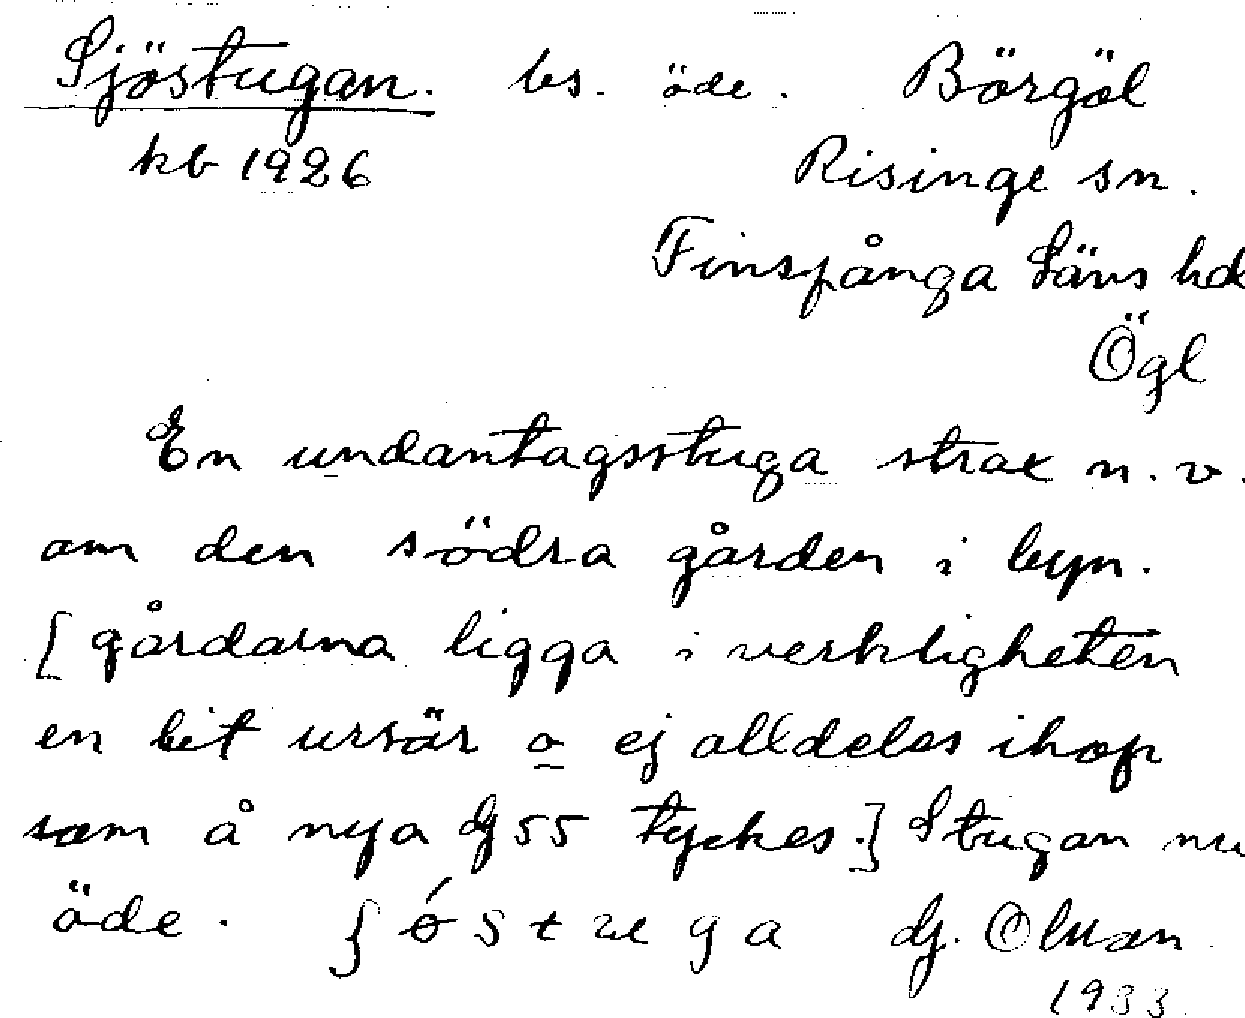 Sjöstugan. bs. öde. Börgöl
kb 1926 Risinge sn.
Finspånga läns hd
Ögl
En undantagsstuga strax n.v.
om den södra gården i byn.
[gårdarna ligga i verkligheten
en bit isär o ej alldeles ihop
som å nya dj 55 tyckes.] Stugan nu
öde. dj. Olsson
1933.